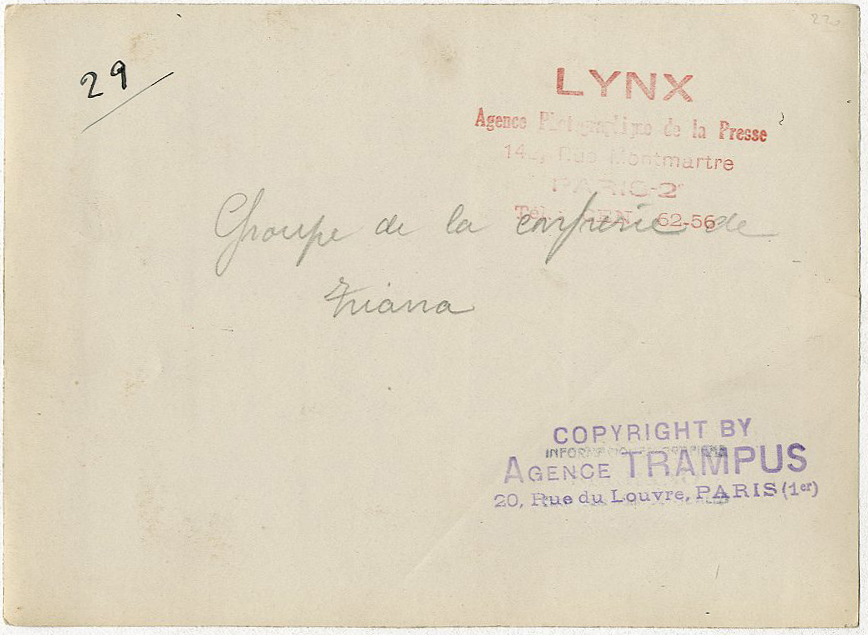 29
LYNX
Agence Photographique de la Presse
142, Rue Montmartre
PARIS-2e
Tél. : CEN. 62-56
Groupe de la confrerie de
Triana
COPYRIGHT BY
AGENCE TRAMPUS
20, Rue du Louvre, PARIS (1er)